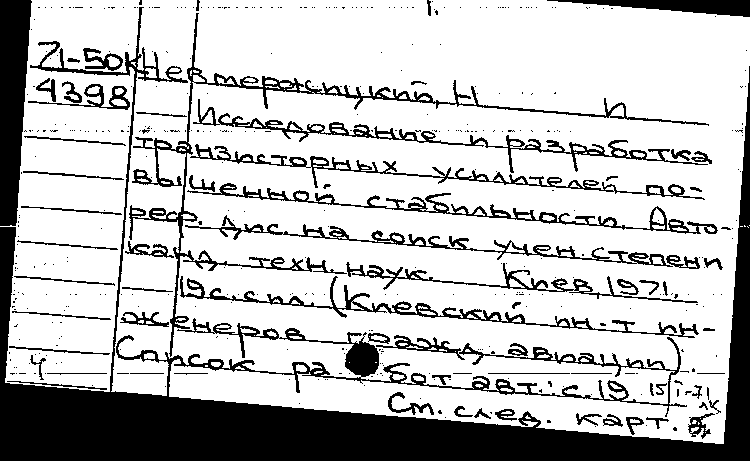 71-50К
4398
Невтержицкий, Н И
Исследование и разработка
транзисторных усилителей по-
вышенной стабильности. Авто-
реф. Дис. на соиск. учен. степени
канд. техн. наук. Киев, 1971.
19 с. с ил. (Киевский ин-т ин-
женеров гражд. авиации).
Список работ авт.: с. 19
См. след. карт.